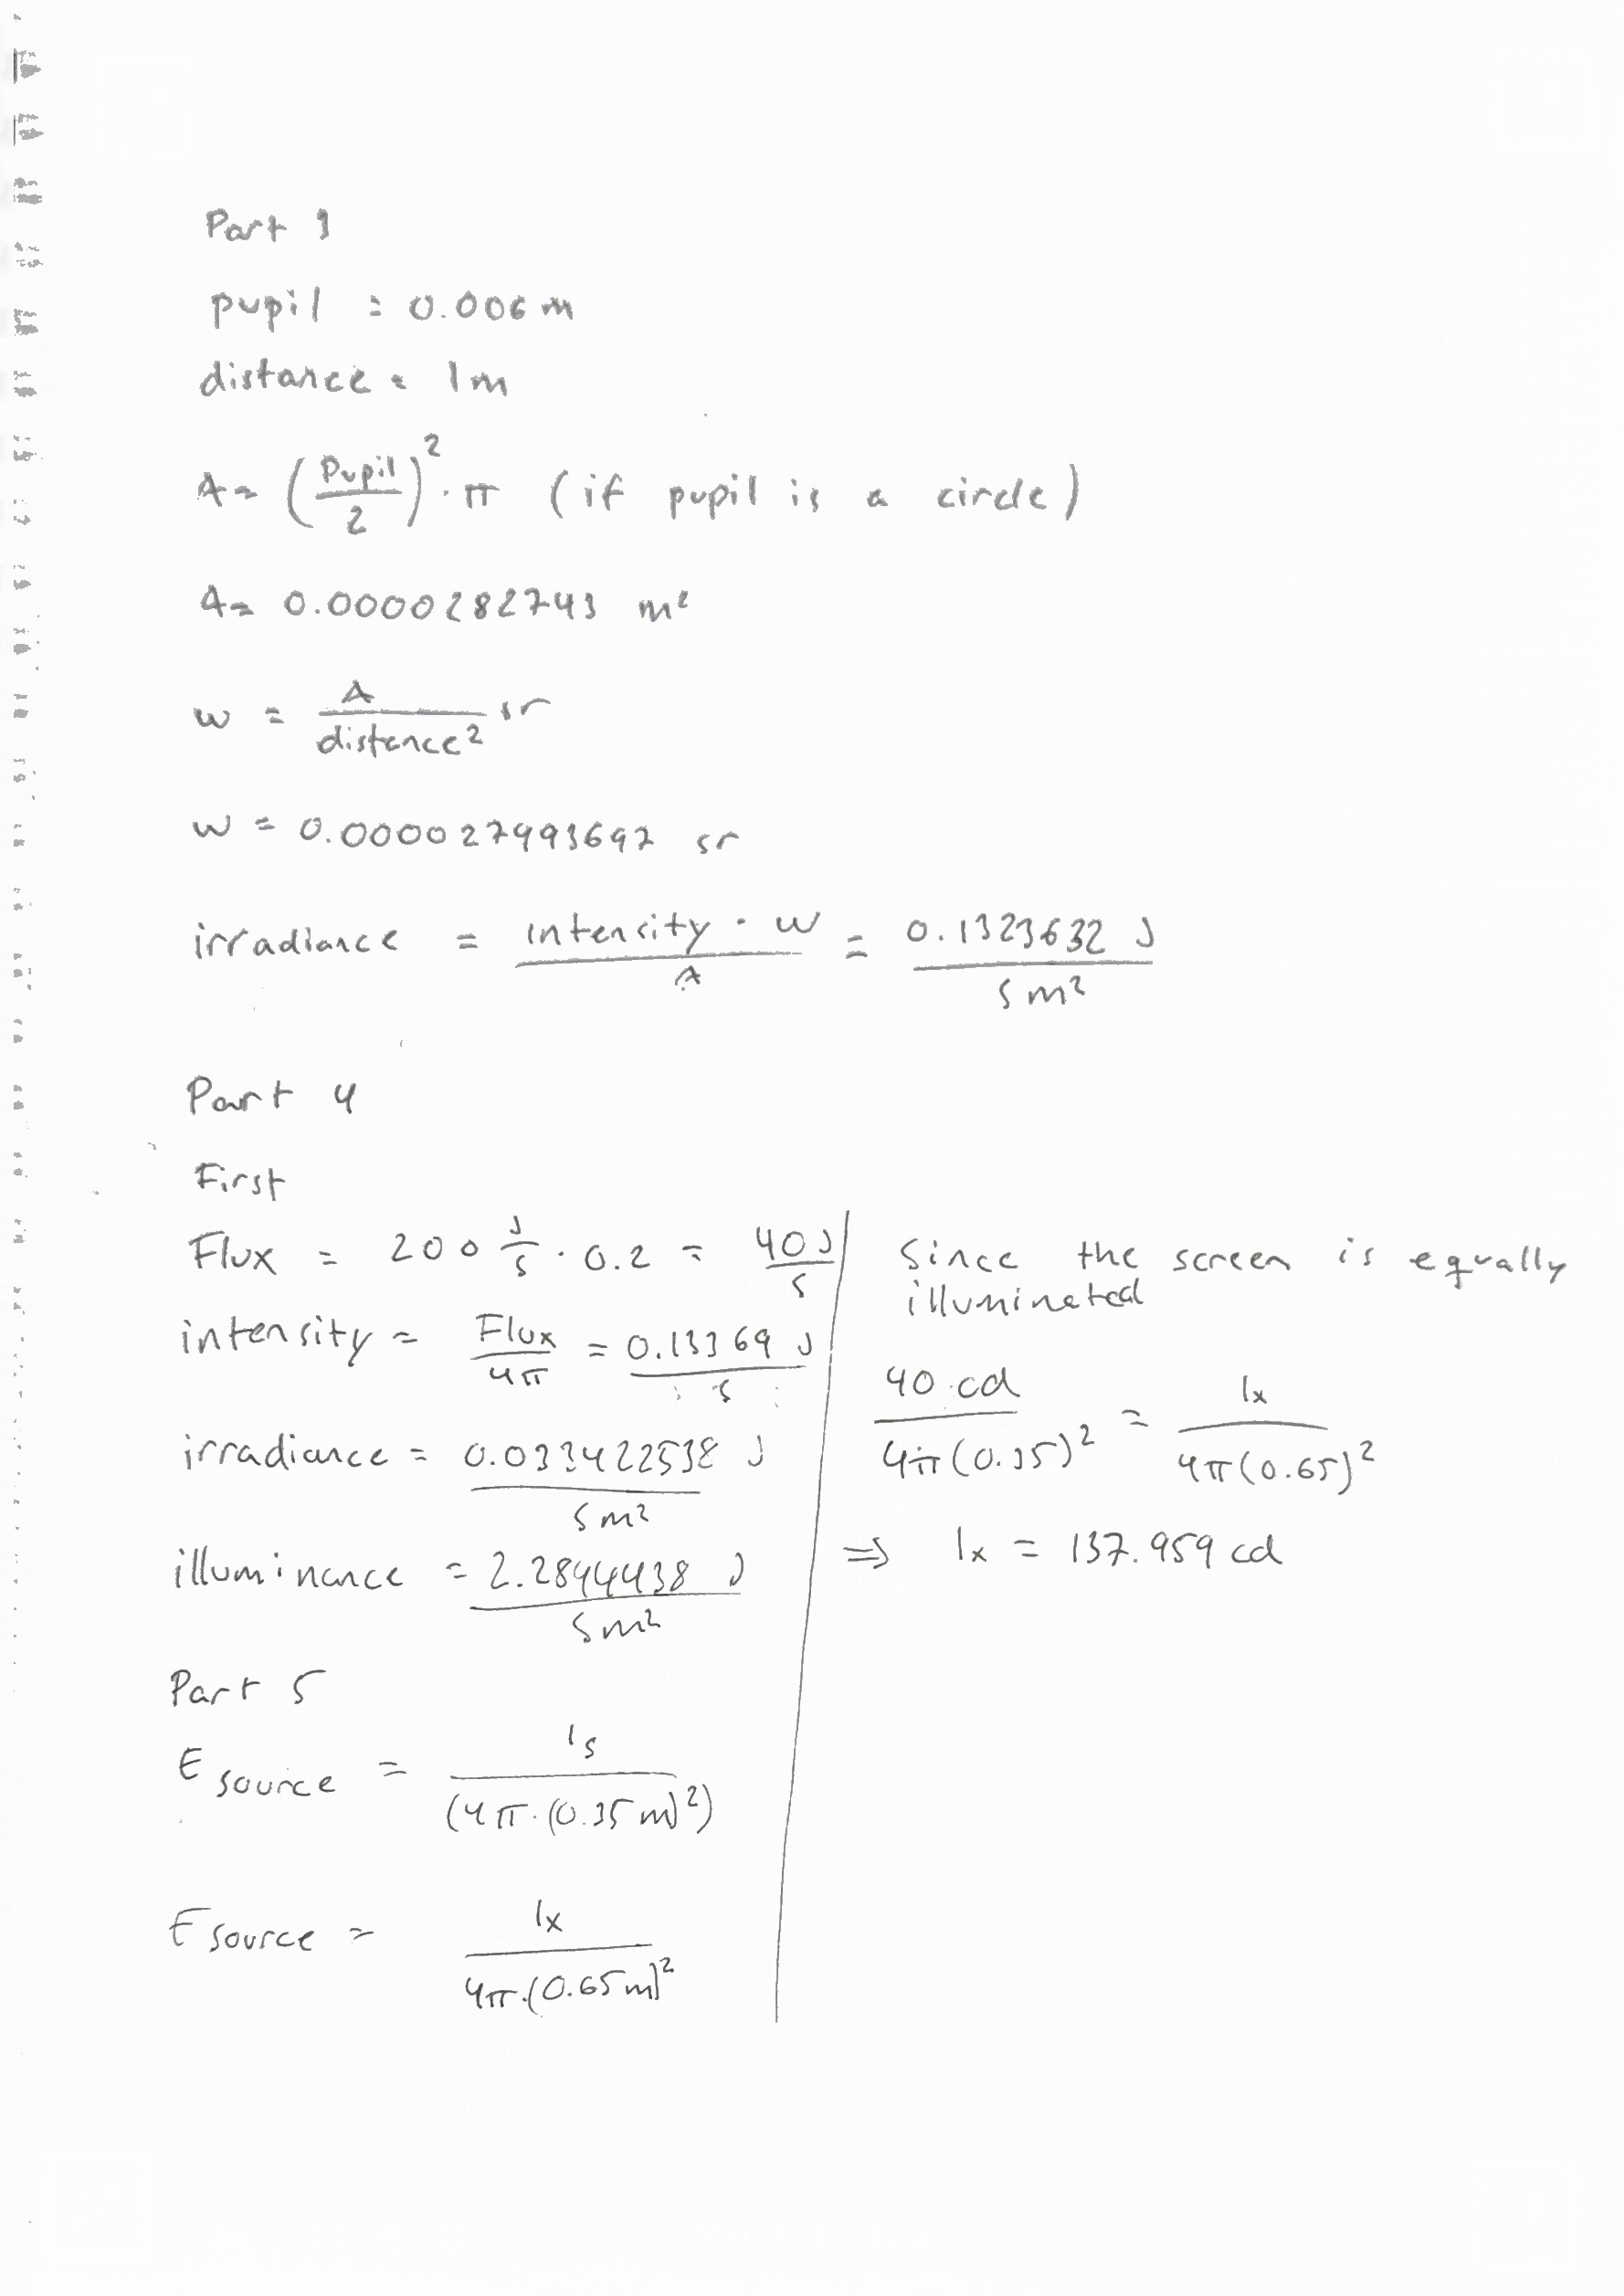 Part 3
pupil = 0.006 m
distance = 1m
A = (Pupil / 2)² · π (if pupil is a circle)
A = 0.0000282743 m²
w = A / distance² sr
w = 0.000027993697 sr
irradiance = intensity · w / A = 0.1323632 J / s m²
Part 4
First
Flux = 200 J/s · 0.2 = 40 J / s
intensity = Flux / 4π = 0.13369 J / s
irradiance = 0.033422538 J / s m²
illuminance = 2.2844438 J / s m²
Part 5
E source = Is / (4π · (0.35 m)²)
E source = Ix / 4π · (0.65 m)²
Since the screen is equally
illuminated
40 cd / 4π (0.35)² = Ix / 4π (0.65)²
⇒ Ix = 137.959 cd